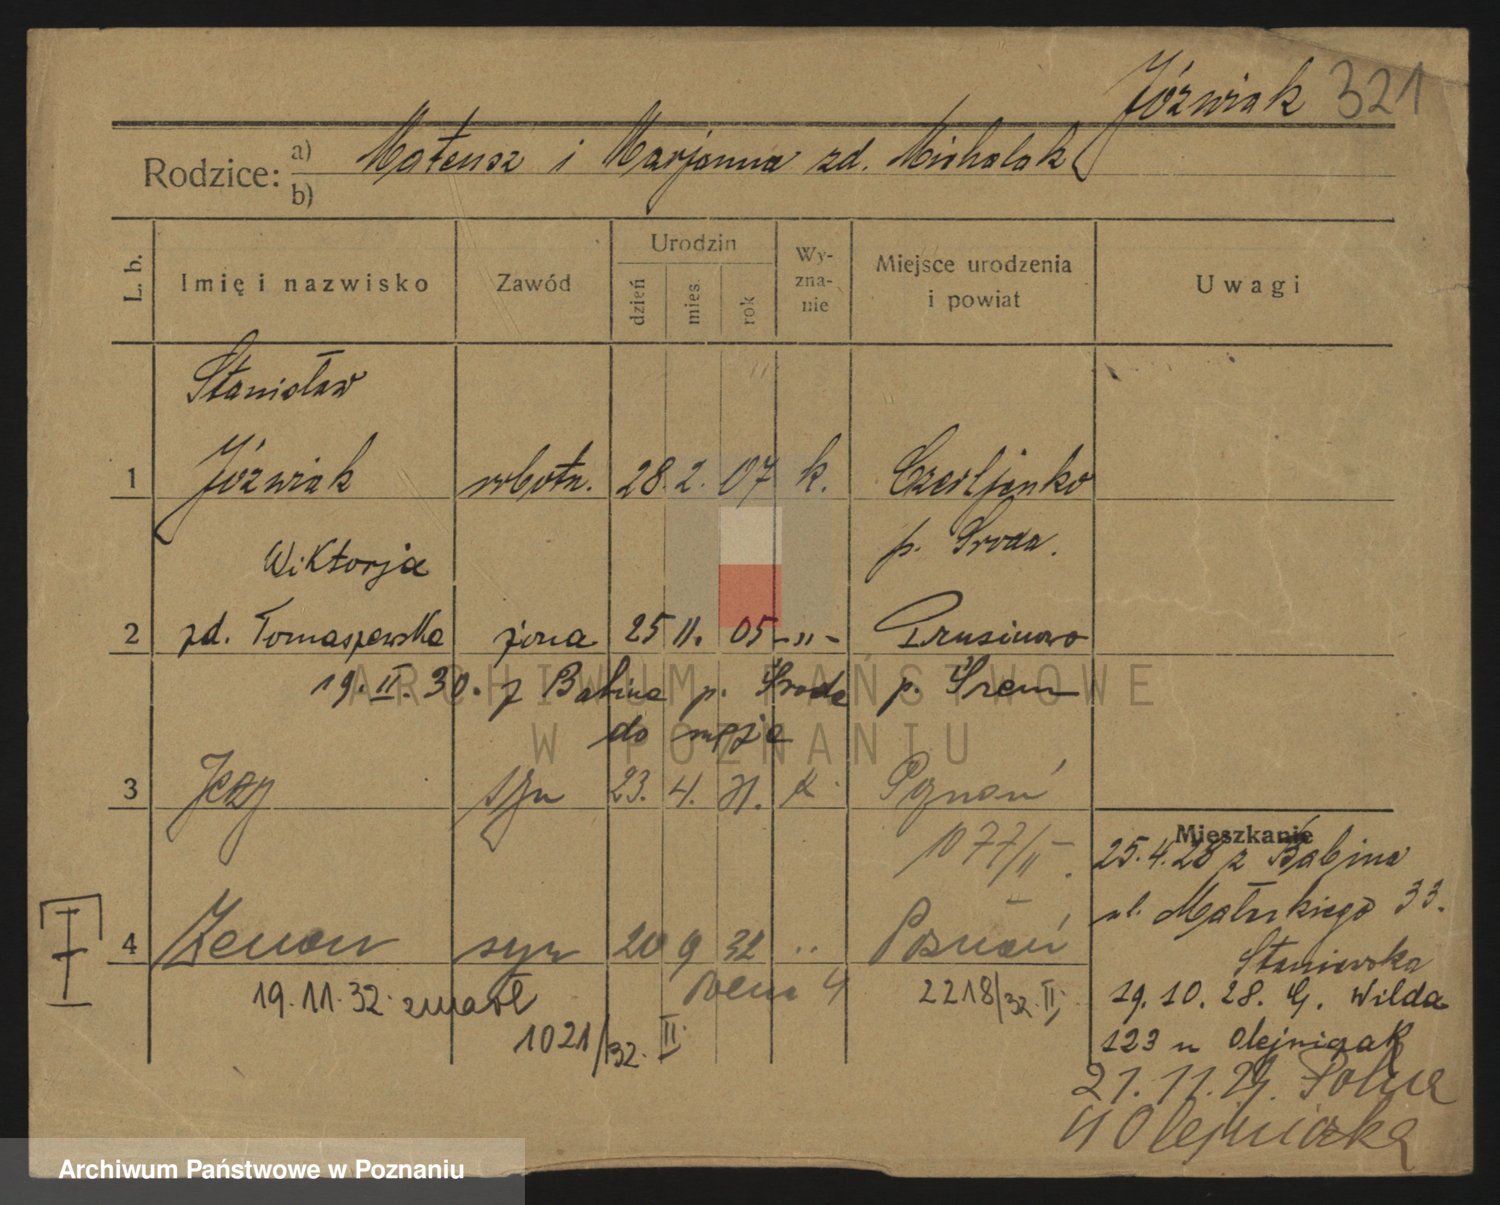 Jóźwiak 321
Rodzice: a) Mateusz i Marjanna zd. Michalak
b)
L. b. Imię i nazwisko Zawód Urodzin dzień mies. rok Wy-zna-nie Miejsce urodzenia i powiat Uwagi
Stanisław
1 Jóźwiak robotn. 28. 2. 07 k. Czerlejenko
p. Środa.
Wiktorja
2 zd. Tomaszewska żona 25 11. 05 -„- Prusinowo
19. II. 30. z Babina p. Środa p. Śrem
do męża
3 Jerzy syn 23. 4. 31. k. Poznań
1077/II.
4 Zenon syn 20 9 32 „ Poznań
19. 11. 32. zmarł 2218/32. II.
1021/32. II.
Mieszkanie
25. 4. 28 z Babina
ul. Małeckiego 33.
Staniewska
19. 10. 28. G. Wilda
123 u Olejniczak
21. 11. 29. Polna
4 Olejniczka
ARCHIWUM PAŃSTWOWE
W POZNANIU
Archiwum Państwowe w Poznaniu